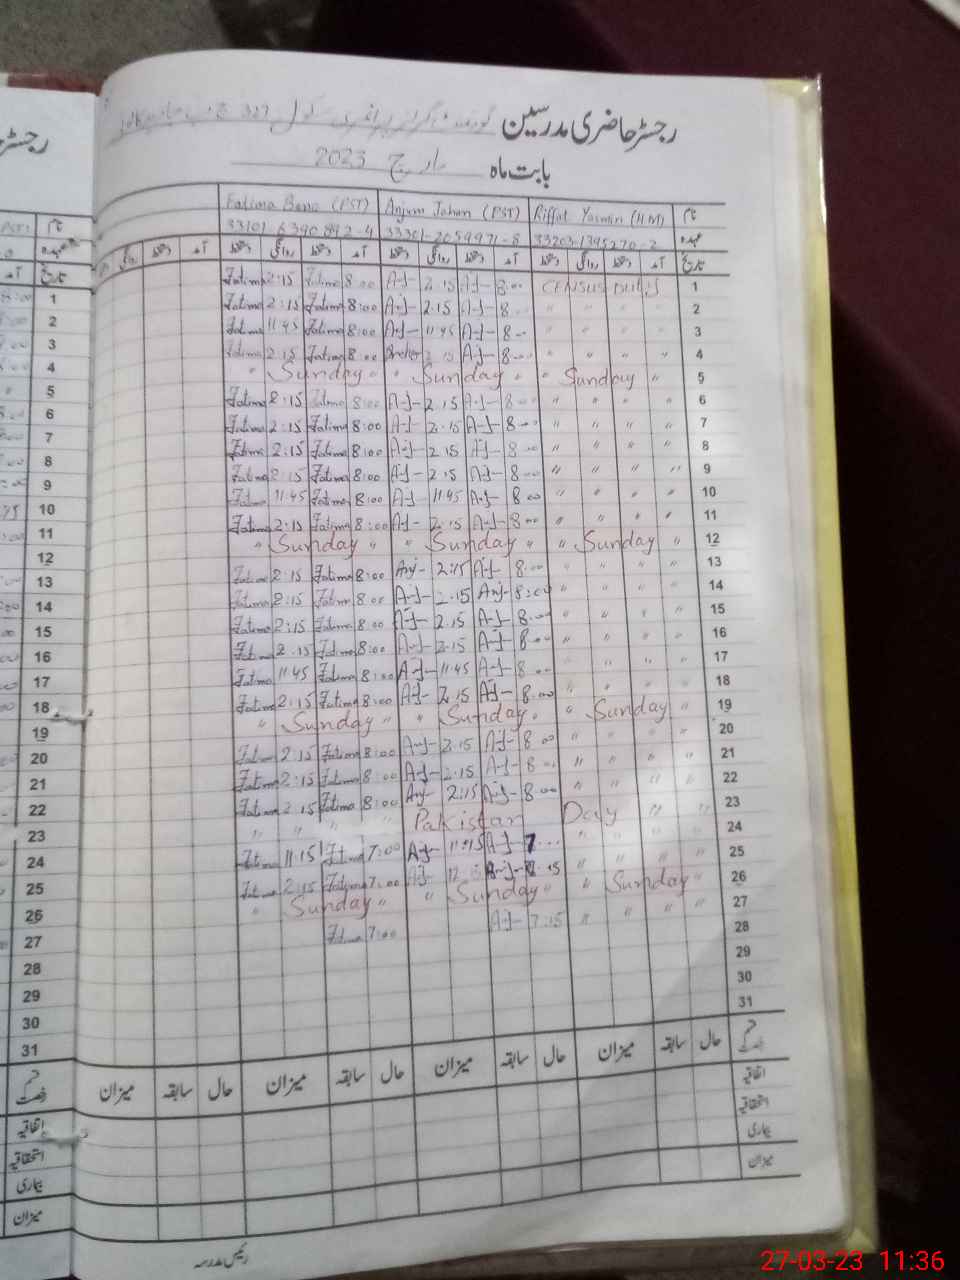 رجسٹر حاضری مدرسین
بابت ماہ مارچ 2023
نام Riffat Yasmin (HM) Anjum Jahan (PST) Fatima Bano (PST)
عہدہ
تاریخ آمد دستخط روانگی دستخط آمد دستخط روانگی دستخط آمد دستخط روانگی دستخط
Fatima 2:15 Fatima 8:00 A-J- 2.15 A-J- 8.00 CENSUS Duty 1
Fatima 2:15 Fatima 8:00 A-J- 2.15 A-J- 8.00 " " " " 2
Fatima 11:45 Fatima 8:00 A-J- 11.45 A-J- 8.00 " " " " 3
Fatima 2.15 Fatima 8:00 2.15 A-J- 8.00 " " " " 4
" Sunday " " Sunday " " Sunday " 5
Fatima 2:15 Fatima 8:00 A-J- 2.15 A-J- 8.00 " " " " 6
Fatima 2:15 Fatima 8:00 A-J- 2.15 A-J- 8.00 " " " " 7
Fatima 2:15 Fatima 8:00 A-J- 2.15 A-J- 8.00 " " " " 8
Fatima 2:15 Fatima 8:00 A-J- 2.15 A-J- 8.00 " " " " 9
Fatima 11:45 Fatima 8:00 A-J- 11.45 A-J- 8.00 " " " " 10
Fatima 2:15 Fatima 8:00 A-J- 2.15 A-J- 8.00 " " " " 11
" Sunday " " Sunday " " Sunday " 12
Fatima 2:15 Fatima 8:00 Anj- 2:15 A-J- 8.00 " " " " 13
Fatima 2:15 Fatima 8:00 A-J- 2.15 Anj- 8:00 " " " " 14
Fatima 2:15 Fatima 8:00 A-J- 2.15 A-J- 8.00 " " " " 15
Fatima 2.15 Fatima 8:00 A-J- 2.15 A-J- 8.00 " " " " 16
Fatima 11.45 Fatima 8:00 A-J- 11.45 A-J- 8.00 " " " " 17
Fatima 2:15 Fatima 8:00 A-J- 2.15 A-J- 8.00 " " " " 18
" Sunday " " Sunday " " Sunday " 19
Fatima 2.15 Fatima 8:00 A-J- 2.15 A-J- 8.00 " " " " 20
Fatima 2:15 Fatima 8:00 A-J- 2.15 A-J- 8.00 " " " " 21
Fatima 2.15 Fatima 8:00 Anj- 2:15 A-J- 8.00 " " " " 22
" " " " Pakistan Day " " 23
Fatima 11:15 Fatima 7:00 A-J- 11:15 A-J- 7 " " " " 24
Fatima 2:15 Fatima 7:00 A-J- 12 A-J- " " " " 25
" Sunday " " Sunday " " Sunday " 26
Fatima 7:00 A-J- 7:15 " " " " 27
28
29
30
31
حال سابقہ میزان حال سابقہ میزان حال سابقہ میزان حال سابقہ میزان
اتفاقیہ
استحقاقیہ
بیماری
میزان
رئیس مدرسہ
نام
عہدہ
تاریخ
1
2
3
4
5
6
7
8
9
10
11
12
13
14
15
16
17
18
19
20
21
22
23
24
25
26
27
28
29
30
31
اتفاقیہ
استحقاقیہ
بیماری
میزان
27-03-23 11:36